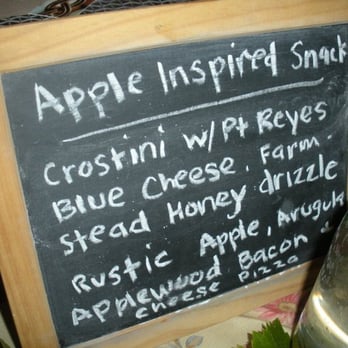 Apple Inspired Snack
Crostini w/Pt Reyes
Blue Cheese. Farm.
Stead Honey drizzle
Rustic Apple, Arugula
Applewood Bacon &
Cheese Pizza